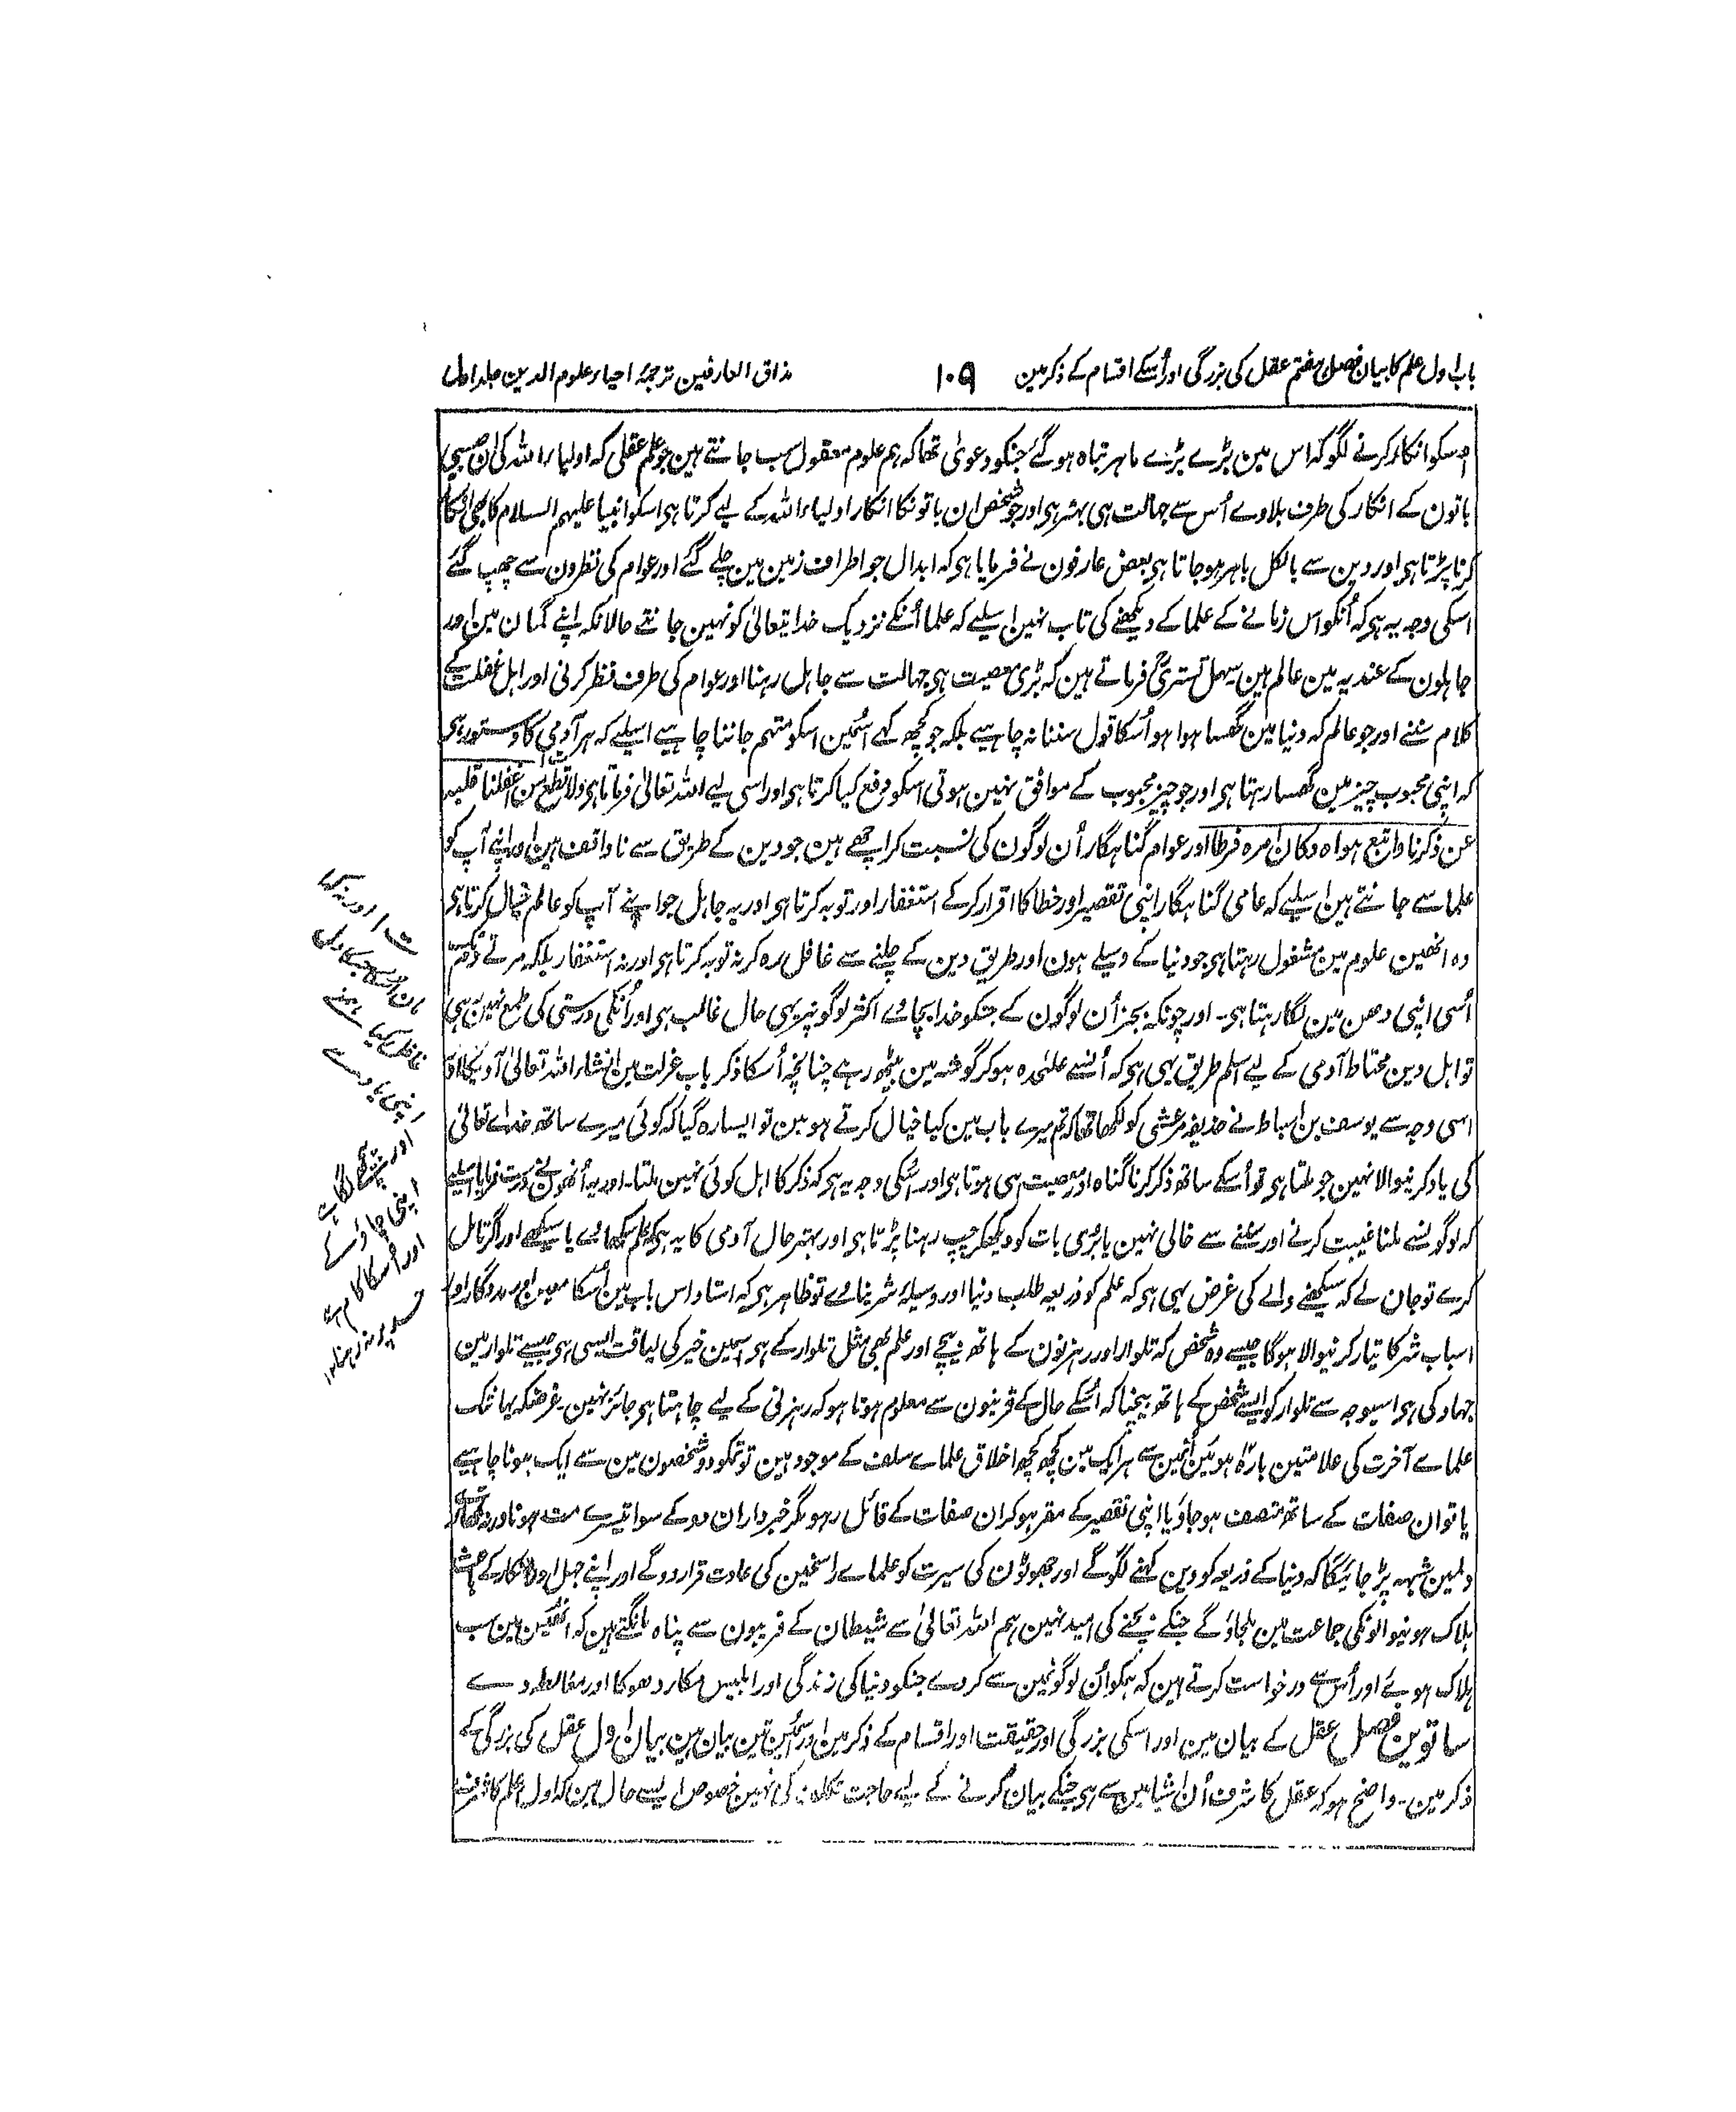 باب اول علم کا بیان فصل ہفتم عقل کی بزرگی اور اُسکے اقسام کے ذکر مین ۱۰۹ مذاق العارفین ترجمۂ احیاء علوم الدین جلد اول
اسکو انکار کرنے لگو کہ اس مین بڑے بڑے ماہر تباہ ہو گئے جنکو دعویٰ تھا کہ ہم علوم معقول سب جانتے ہین جو علم عقلی کہ اولیاء اللہ کی ان جیسی
باتون کے انکار کی طرف بلاوے اُس سے جہالت ہی بہتر ہی اور جو شخص ان باتونکا انکار اولیاء اللہ کے لیے کرتا ہی اسکو انبیا علیہم السلام کا بھی انکار
کرنا پڑتا ہی اور دین سے بالکل باہر ہو جاتا ہی بعض عارفون نے فرمایا ہی کہ ابدال جو اطراف زمین مین چلے گئے اور عوام کی نظرون سے چھپ گئے
اسکی وجہ یہ ہی کہ اُنکو اس زمانے کے علما کے دیکھنے کی تاب نہین اسلیے کہ علما اُنکے نزدیک خدا یتعالیٰ کو نہین جانتے حالانکہ اپنے گمان مین اور
جاہلون کے عندیہ مین عالم ہین سہل تستریؒ فرماتے ہین کہ بڑی معصیت ہی جہالت سے جاہل رہنا اور عوام کی طرف نظر کرنی اور اہل غفلت کے
کلام سننے اور جو عالم کہ دنیا مین گھسا ہوا ہو اُسکا قول سننا نہ چاہیے بلکہ جو کچھ کہے اُسمین اسکو متہم جاننا چاہیے اسلیے کہ ہر آدمی کا دستور ہی
کہ اپنی محبوب چیز مین گھسا رہتا ہی اور جو چیز محبوب کے موافق نہین ہوتی اسکو دفع کیا کرتا ہی اور اسی لیے اللہ تعالیٰ فرماتا ہی ولا تطع من اغفلنا قلبہ
عن ذکرنا واتبع ہواہ وکان امرہ فرطا اور عوام گناہگار اُن لوگون کی نسبت کر اچھے ہین جو دین کے طریق سے ناواقف ہین اور اپنے آپ کو
علما سے جانتے ہین اسلیے کہ عامی گناہگار اپنی تقصیر اور خطا کا اقرار کرکے استغفار اور توبہ کرتا ہی اور یہ جاہل جو اپنے آپ کو عالم خیال کرتا ہی
وہ انھین علوم مین مشغول رہتا ہی جو دنیا کے وسیلے ہون اور طریق دین کے چلنے سے غافل رہ کر نہ توبہ کرتا ہی اور نہ استغفار بلکہ مرتے دم تک
اُسی اپنی دھن مین لگا رہتا ہی۔ اور چونکہ بجز اُن لوگون کے جنکو خدا بچائے اکثر لوگونپر یہی حال غالب ہی اور اُنکی درستی کی طمع نہین رہی
تو اہل دین محتاط آدمی کے لیے اسلم طریق یہی ہی کہ اُنسے علیٰحدہ ہو کر گوشہ مین بیٹھ رہے چنانچہ اُسکا ذکر باب عزلت مین انشاء اللہ تعالیٰ آویگا اور
اسی وجہ سے یوسف بن اسباط نے حذیفہ مرعشی کو لکھا تھا کہ تم میرے باب مین کیا خیال کرتے ہو مین تو ایسا رہ گیا کہ کوئی میرے ساتھ خداے تعالیٰ
کی یاد کرنیوالا نہین جو ملتا ہی تو اُسکے ساتھ ذکر کرنا گناہ اور معصیت ہی ہوتا ہی اور اُسکی وجہ یہ ہی کہ ذکر کا اہل کوئی نہین ملتا۔ اور یہ اُنھون نے درست فرمایا اسلیے
کہ لوگونسے ملنا غیبت کرنے اور سننے سے خالی نہین یا بُری بات کو دیکھکر چپ رہنا پڑتا ہی اور بہتر حال آدمی کا یہ ہی کہ علم سکھائے یا سیکھے اور اگر تامل
کرے تو جان لے کہ سیکھنے والے کی غرض یہی ہی کہ علم کو ذریعہ طلب دنیا اور وسیلۂ شر بناوے تو ظاہر ہی کہ استاد اس باب مین اُسکا معین اور مددگار اور
اسباب شر کا تیار کرنیوالا ہوگا جیسے وہ شخص کہ تلوار اور رہزنون کے ہاتھ بیچے اور علم بھی مثل تلوار کے ہی اسمین خیر کی لیاقت ایسی ہی جیسے تلوار مین
جہاد کی ہی اسیوجہ سے تلوار کو ایسے شخص کے ہاتھ بیچنا کہ اُسکے حال کے قرینون سے معلوم ہوتا ہو کہ رہزنی کے لیے چاہتا ہی جائز نہین۔ غرضکہ یہانتک
علماے آخرت کی علامتین بارہ ہوئین اُنمین سے ہر ایک مین کچھ کچھ اخلاق علماے سلف کے موجود ہین تو تمکو دو شخصون مین سے ایک ہونا چاہیے
یا تو ان صفات کے ساتھ متصف ہو جاؤ یا اپنی تقصیر کے مقر ہو کر ان صفات کے قائل رہو مگر خبردار ان دو کے سوا تیسرے مت ہونا ورنہ تمھارے
دلمین شبہہ پڑ جائیگا کہ دنیا کے ذریعہ کو دین کہنے لگوگے اور جھوٹون کی سیرت کو علماے راسخین کی عادت قرار دوگے اور اپنے جہل اور انکار کے باعث
ہلاک ہونیوالونکی جماعت مین ملجاؤگے جنکے بچنے کی امید نہین ہم اللہ تعالیٰ سے شیطان کے فریبون سے پناہ مانگتے ہین کہ انھین مین سب
ہلاک ہوئے اور اُس سے درخواست کرتے ہین کہ ہمکو اُن لوگونمین سے کردے جنکو دنیا کی زندگی اور ابلیس مکار دھوکا اور مغالطہ نہ دے
ساتوین فصل عقل کے بیان مین اور اسکی بزرگی اور حقیقت اور اقسام کے ذکر مین اور اسمین تین بیان ہین بیان اول عقل کی بزرگی کے
ذکر مین۔ واضح ہو کہ عقل کا شرف اُن اشیا مین سے ہی جنکے بیان کرنے کے لیے حاجت تکلف کی نہین خصوص ایسے حال مین کہ اول علم کا شرف
اور نہ کہا
مان اُسکا جسکا دل
غافل کیا ہمنے
اپنی یاد سے
اور پیچھے لگا ہے
اپنی چاؤ کے
اور اُسکا کام ہے
حد پر نہ رہنا ۱۲